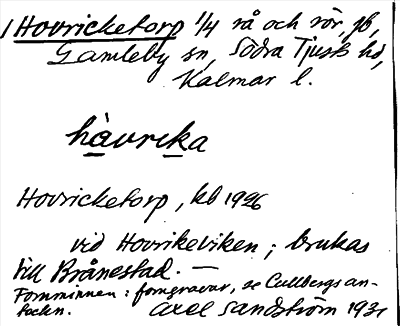 1 Hovricketorp 1/4 rå och rör, gb,
Gamleby sn, Södra Tjusts hd,
Kalmar l.
hàvrika
Hovricketorp, kb 1926
vid Hovrikeviken; brukas
till Brånestad. —
Fornminnen: forngravar, se Cullbergs an-
teckn.
Axel Sandström 1931